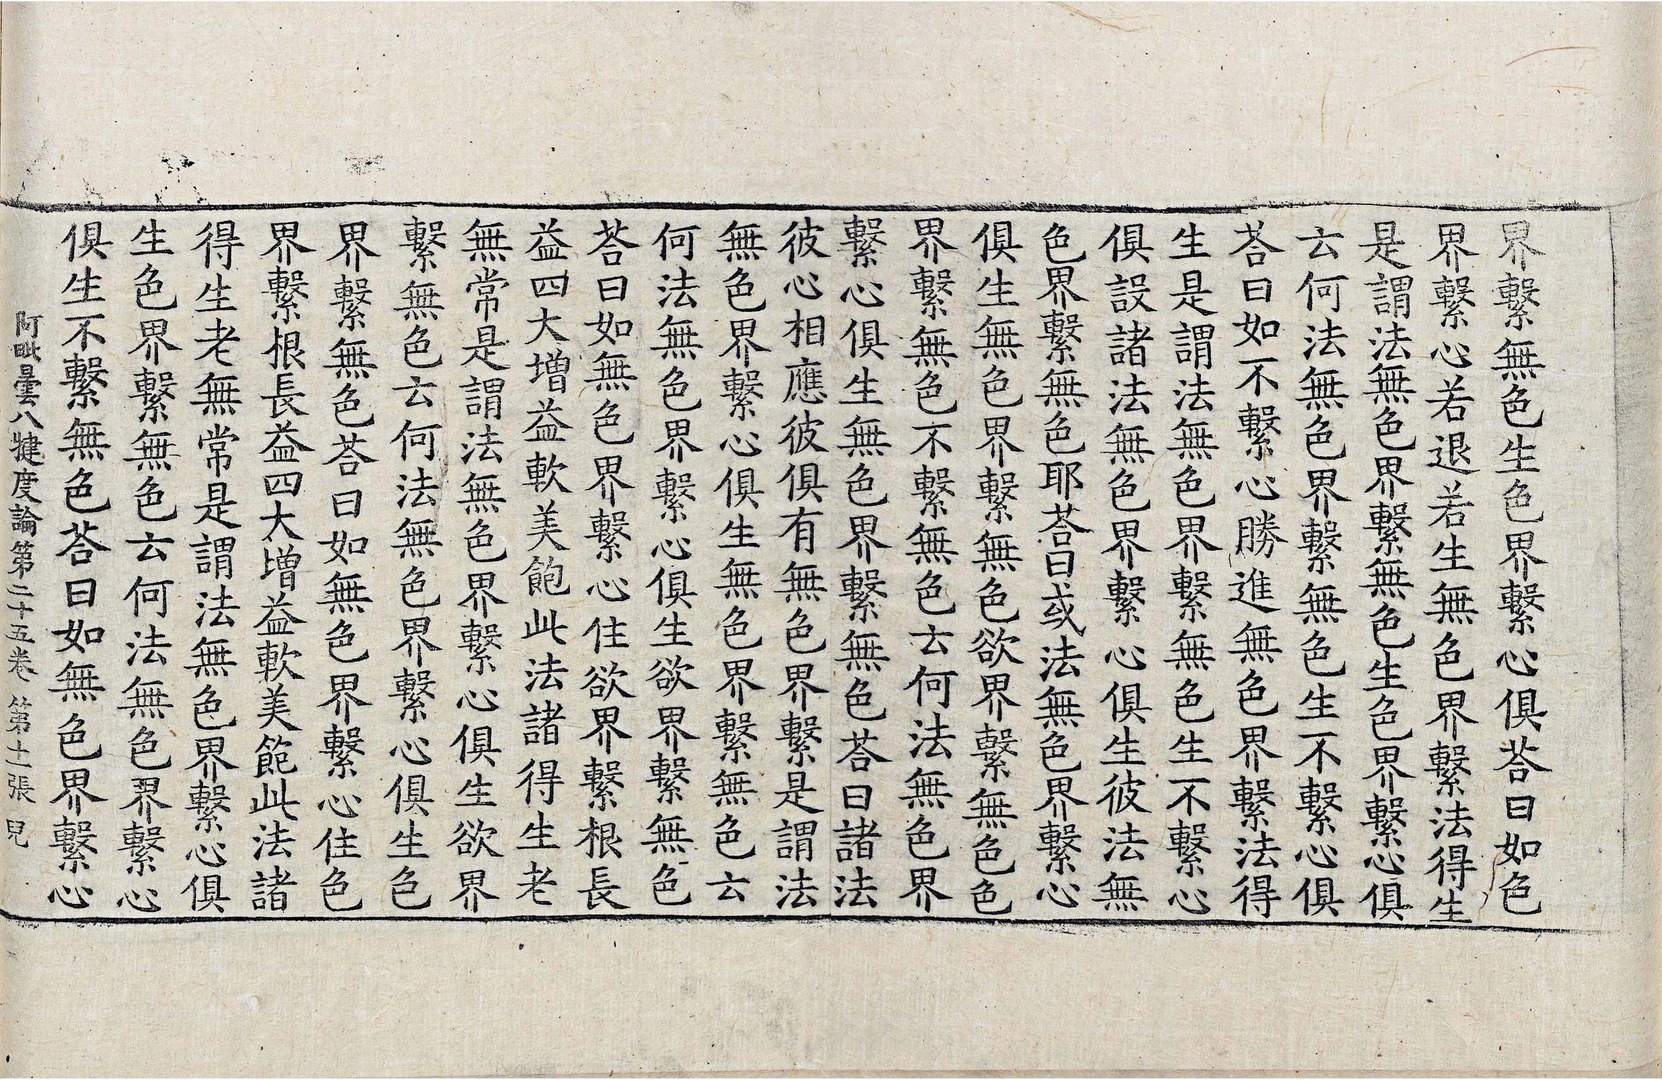 界繫無色生色界繫心俱荅曰如色
界繫心若退若生無色界繫法得生
是謂法無色界繫無色生色界繫心俱
云何法無色界繫無色生不繫心俱
荅曰如不繫心勝進無色界繫法得
生是謂法無色界繫無色生不繫心
俱設諸法無色界繫心俱生彼法無
色界繫無色耶荅曰或法無色界繫心
俱生無色界繫無色欲界繫無色色
界繫無色不繫無色云何法無色界
繫心俱生無色界繫無色荅曰諸法
彼心相應彼俱有無色界繫是謂法
無色界繫心俱生無色界繫無色云
何法無色界繫心俱生欲界繫無色
荅曰如無色界繫心住欲界繫根長
益四大增益軟美飽此法諸得生老
無常是謂法無色界繫心俱生欲界
繫無色云何法無色界繫心俱生色
界繫無色荅曰如無色界繫心住色
界繫根長益四大增益軟美飽此法諸
得生老無常是謂法無色界繫心俱
生色界繫無色云何法無色界繫心
俱生不繫無色荅曰如無色界繫心
阿毗曇八犍度論第二十五卷 第十一張 皃